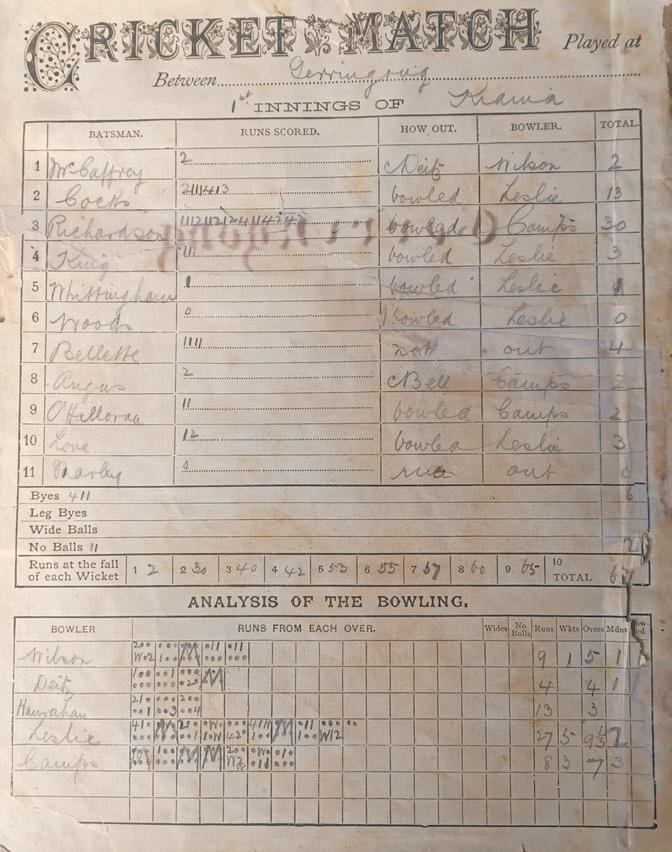 CRICKET MATCH Played at
Between Gerringong
1st INNINGS OF Kiama
BATSMAN. RUNS SCORED. HOW OUT. BOWLER. TOTAL.
1 McCaffrey 2 c Deitz Wilson 2
2 Cocks 2111413 bowled Leslie 13
3 Richardson bowled Camps 30
4 King 111 bowled Leslie 3
5 Whittingham 1 bowled Leslie 1
6 Woods 0 bowled Leslie 0
7 Bellette 1111 not out 4
8 Angus 2 c Bell Camps 2
9 O'Halloran 11 bowled Camps 2
10 Love 12 bowled Leslie 3
11 0 run out 0
Byes 411 6
Leg Byes
Wide Balls
No Balls 11 2
Runs at the fall
of each Wicket 1 2 2 30 3 40 4 42 5 53 6 55 7 57 8 60 9 65 10
TOTAL
ANALYSIS OF THE BOWLING.
BOWLER RUNS FROM EACH OVER. Wides No Balls Runs Wkts Overs Mdns
Wilson 9 1 5 1
Deitz 4 4 1
Hanrahan 13 3
Leslie 27 5 2
Camps 8 3 7 3